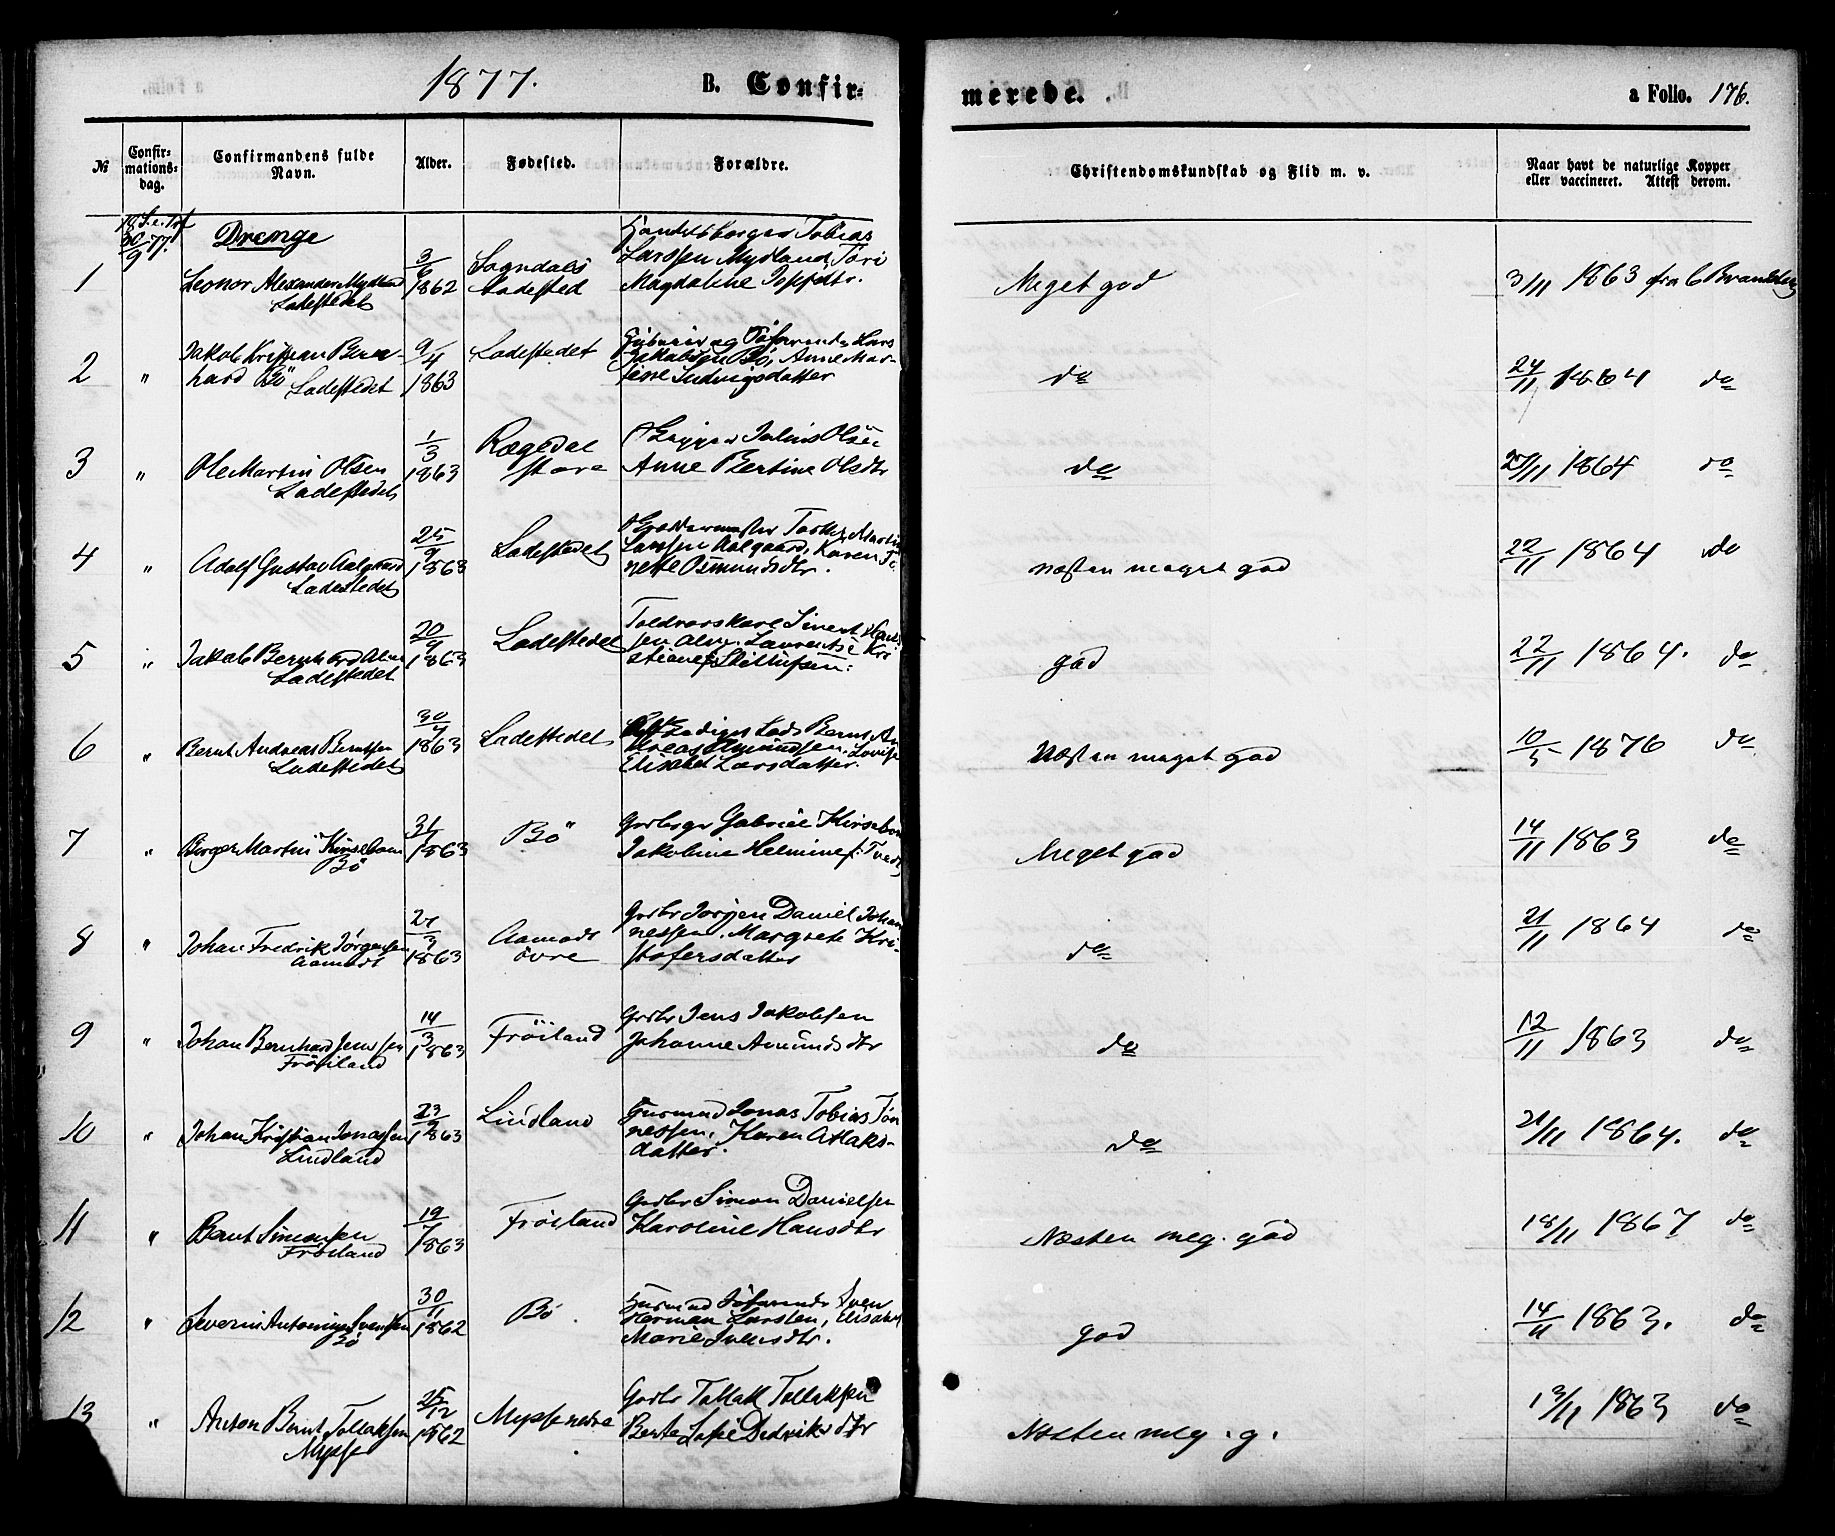 1877.
B. Confir=
merede.
a Folio. 176.
№
Confir=
mations=
dag.
Confirmandens fulde
Navn.
Alder.
Fødested.
Forældre.
Christendomskundskab og Flid m. v.
Naar havt de naturlige Kopper
eller vaccineret. Attest derom.
30/9 77.
Drenge
1
Leonor Alexander Mydland
Ladestedet
3/6
1862
Sogndals
Ladested
Handelsborger Tobias
Larssen Mydland, Tori
Magdalene Joppdtr.
Meget god
3/11 1863 fra C Brandt
2
"
Jakob Kristian Bern-
hard Bö
Ladestedet
9/4
1863
Ladestedet
og Söfarende Lars
Jakobsen Bö, Anne Mar-
tine Ludvigsdatter
do
24/11 1864 do
3
"
Ole Martin Olsen
Ladestedet
1/3
1863
Rægedal
store
Julius Olsen
Anne Bertine Olsdtr
do
1864 do
4
"
Adolf Gustav Aalgaard
Ladestedet
25/9
1863
Ladestedet
Martin
Larssen Aalgaard, Karen Te-
nette Osmundsdtr.
næsten meget god
22/11 1864 do
5
"
Jakob Bernhard
Ladestedet
20/4
1863
Ladestedet
Toldvorskarl Sivert Han-
sen Laurentse Kri
stiane f.
god
22/11 1864. do
6
"
Bernt Andreas Berntsen
Ladestedet
30/4
1863
Ladestedet
Lods Bernt An
dreas Amundsen, Lovise
Elisabet Larsdatter.
Næsten meget god
10/5 1876 do
7
"
Birger Martin Kirsebom
Bö
31/1
1863
Bö
Gaardbr Gabriel Kirsebom
Jakobine Helmine f. Tvedt
Meget god
14/11 1863 do
8
"
Johan Fredrik Jørgensen
Aamodt
1863
Aamodt
övre
Gardbr Jörgen Daniel Johan
nessen. Margrete Kri-
stofersdatter
do
21/11 1864 do
9
"
Johan Bernhard Jenssen
Fröiland
14/3
1863
Fröiland
Gardbr Jens Jakobsen
Johanne Amundsdtr
do
12/11 1863 do
10
"
Johan Kristian Jonassen
Lindland
23/9
1863
Lindland
Husmand Jonas Tobias Tön
nessen, Karen Atlaks-
datter.
do
21/11 1864. do
11
"
Bernt Simonsen
Fröiland
19/7
1863
Fröiland
Gardbr Simon Danielsen
Karoline Hansdtr
Næsten meg. god
18/11 1867 do
12
"
Severin Antonius Svensen
Bö
30/11
1862
Bö.
Husmand Söfarende Sven
Herman Larsten, Elisabet
Marie Svensdtr.
god
14/11 1863. do
13
"
Anton Bernt Tollaksen
Mysse
1862
Mysse nedre
Gardbr Tollak Tollaksen
Berte Sofie Dedriksdtr
Næsten meg. g.
13/11 1863 do